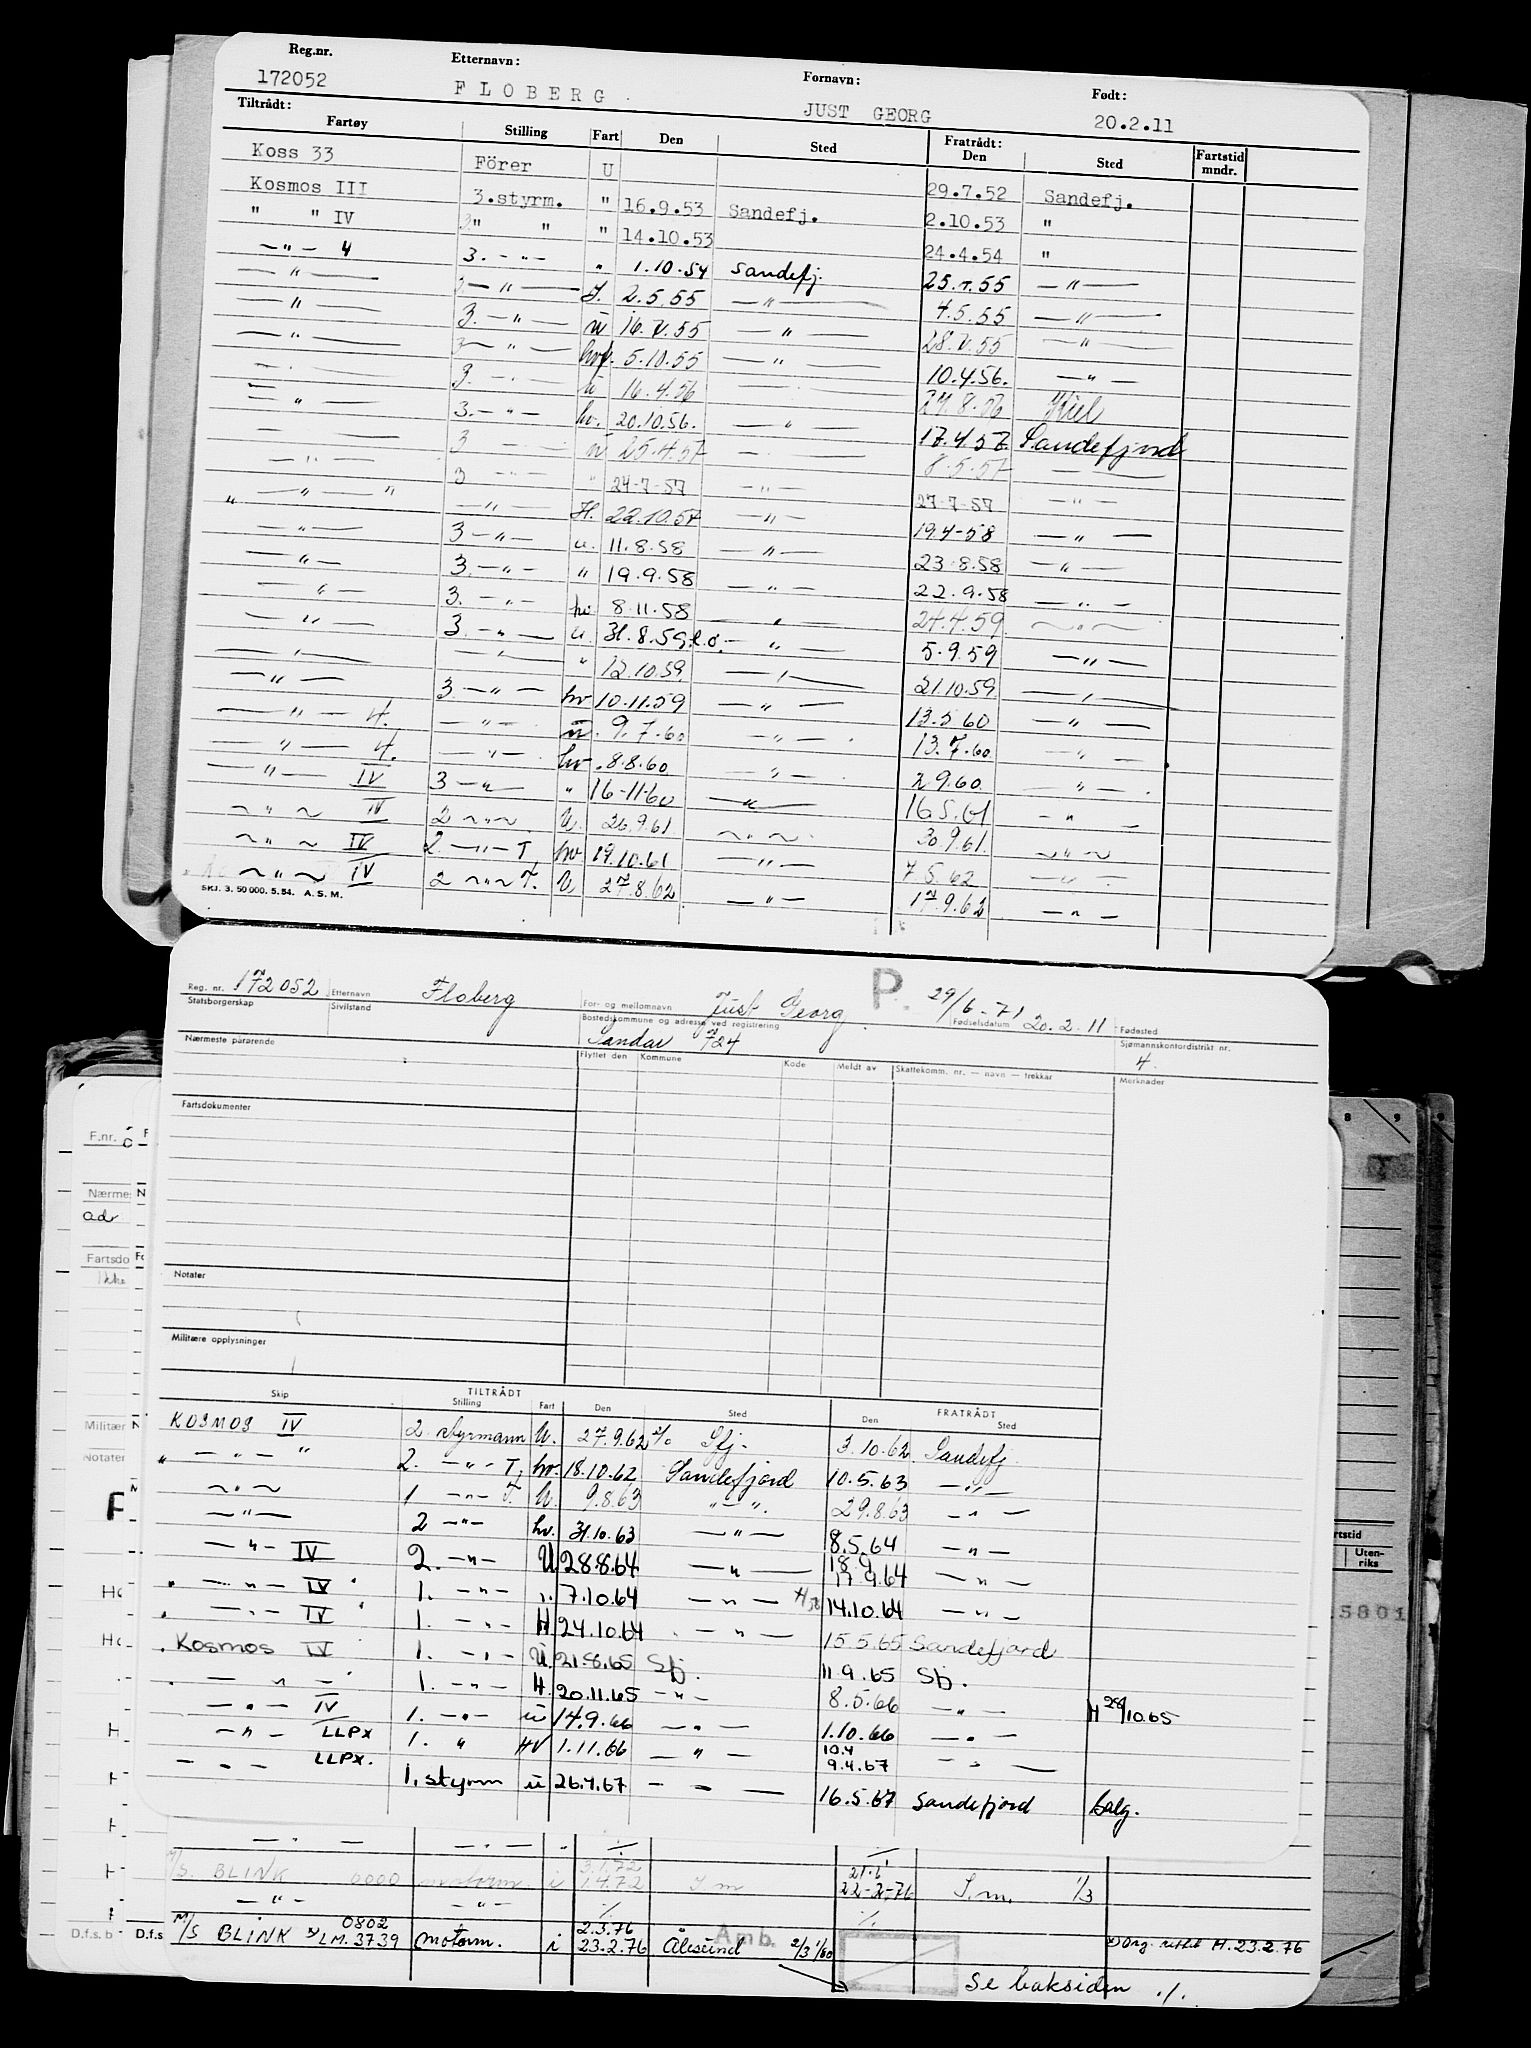 Reg.nr. Etternavn: Fornavn: Født:
172052 FLOBERG JUST GEORG 20.2.11
Tiltrådt: Fratrådt:
Fartøy Stilling Fart Den Sted Den Sted Fartstid mndr.
Koss 33 Förer U 29.7.52 Sandefj.
Kosmos III 3.styrm. " 16.9.53 Sandefj. 2.10.53 "
" " IV 3" " " 14.10.53 24.4.54 "
— " — 4 3. — " — " 1.10.54 Sandefj. 25.4.55 — " —
— " — — " — 2.5.55 — " — 4.5.55 — " —
— " — 3. — " — ü 16.V.55 — " — 28.V.55 — " —
— " — 3 — " — hvf. 5.10.55 — " — 10.4.56. — " —
— " — 3. — " — ü 16.4.56 — " — 24.8.56 Kiel
— " — 3. — " — hv. 20.10.56. — " — 17.4.57. Sandefjord
— " — 3 — " — ü 25.4.57 — " — 8.5.57 — " —
— " — 3 — " — " 24-7-57 — " — 27-7-57 — " —
" — " — " — " — H. 22.10.57 — " — 19.4-58 — " —
— " — 3 — " — u. 11.8.58 — " — 23.8.58 — " —
— " — 3. — " — " 19.9.58 — " — 22.9.58 — " —
— " — 3. — " — hv. 8.11.58 — " — 24.4.59. — " —
— " — 3. — " — u. 31.8.59 — " — 5.9.59 — " —
— " — — " — " 12.10.59. — " — 21.10.59. — " —
— " — 3. — " — hv 10.11.59 — " — 13.5.60 — " —
— " — 4. — " — ü. 9.7.60 — " — 13.7.60 — " —
— " — 4. — " — hv. 8.8.60 — " — 2.9.60. — " —
— " — IV 3 — " — " 16-11-60 — " — 16.5.61 — " —
— " — IV 2 — " — U. 26.9.61. — " — 30.9.61. — " —
— " — IV 2. — " — T. hv 19.10.61 — " — 7.5.62 — " —
— " — IV 2 — " — T. U 27.8.62 — " — 17.9.62 — " —
SKJ. 3. 50 000. 5. 54. A. S. M.
P. 29/6-71
Reg. nr. 172052 Etternavn Floberg For- og mellomnavn Just Georg Fødselsdatum 20.2.11 Fødested
Statsborgerskap Sivilstand Bostedskommune og adresse ved registrering Sandar 724 Sjømannskontordistrikt nr. 4.
Nærmeste pårørende Flyttet den Kommune Kode Meldt av Skattekomm. nr. — navn — trekkår Merknader
Fartsdokumenter
Notater
Militære opplysninger
TILTRÅDT FRATRÅDT
Skip Stilling Fart Den Sted Den Sted
KOSMOS IV 2. styrmann U. 27.9.62 Sfj. 3.10.62. Sandefj
" — " — " 2. — " — T. hv. 18.10.62 Sandefjord 10.5.63 — " —
— " — 1 — " — T. U. 9.8.63 " — ". 29.8.63 — " —
— " — 2 — " — hv. 31.10.63 — " — 8.5.64 — " —
— " — IV 2. — " — U 28.8.64 — " — 18.9 17.9.64 — " —
" — " — IV " 1. — " — " 7.10.64 — " — 14.10.64 — " —
" — " — IV " 1. — " — H 24.10.64 — " — 15.5.65 Sandefjord
" Kosmos IV 1. — " — U. 21.8.65 Sfj. 11.9.65 Sfj.
" — " — " 1. — " — H. 20.11.65 — " — 8.5.66 — " — H 28/10.65
— " — IV 1. — " — ü 14.9.66 — " — 1.10.66 — " —
— " — LLPX 1. " HV 1.11.66 — " — 10.4 9.4.67 — " —
— " — LLPX. 1. styrm ü 26.4.67 — " — 16.5.67 Sandefjord Salg.
— " — — " — " ./. ./.
M/S. BLINK 0000 motorm. i 3.1.72 1.4.72 22-2-76 1/3
— " — — " — ./. ./.
M/S BLINK LM. 3739 0802 motorm. i 2.3.76 23.2.76 Ålesund 2/3 Amb. Org. rettet H. 23.2.76
Se baksiden ./.
F.nr.
Nærme
adr
Fartsdo
Ikke
Militær
Notater
F
D.f.s. b D.f.s
8 9
rtstid
Uten-
riks
5801